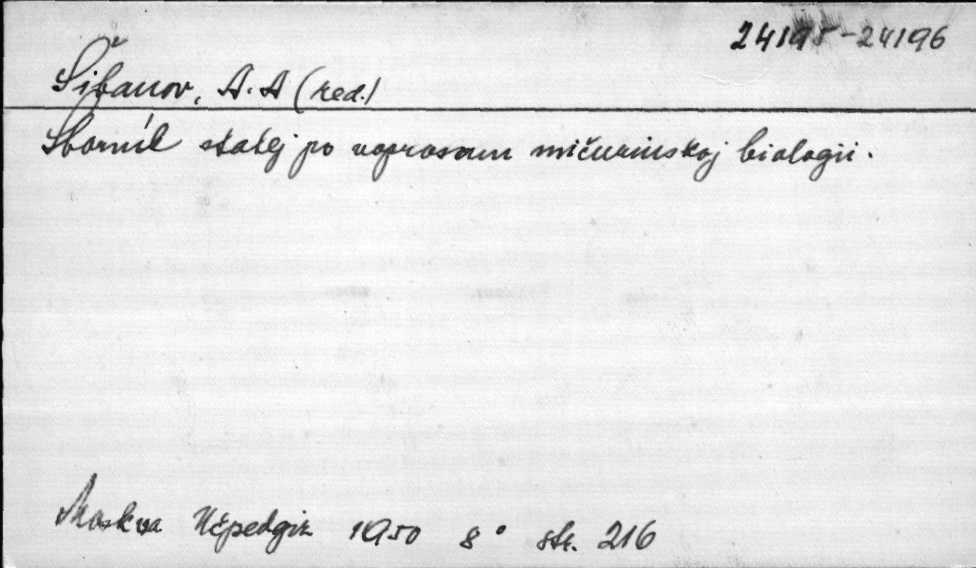 24195-24196
Šibanov, A. A (red.)
Sborník statej po voprosam mičurinskoj biologii.
Moskva Učpedgiz 1950 8° str. 216